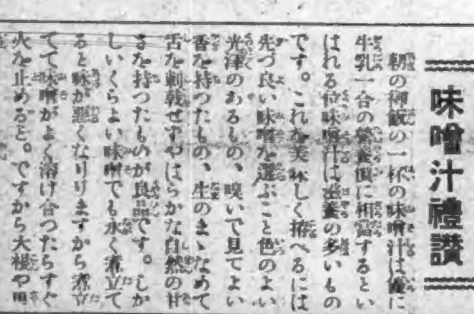 味噌汁禮讃
朝の御飯の一杯の味噌汁は優に
牛乳一合の營養價に相當するとい
はれる位味噌汁は滋養の多いもの
です。これを美味しく拵へるには
先づ良い味噌を選ぶこと色のよい
光澤のあるもの、嗅いで見てよい
香を持つたもの、生のまゝなめて
舌を刺戟せずやはらかな自然の甘
さを持つたものが良品です。しか
しいくらよい味噌でも永く煮立て
ると味が惡くなりりますから煮立
てて味噌がよく溶け合つたらすぐ
火を止めると。ですから大根や